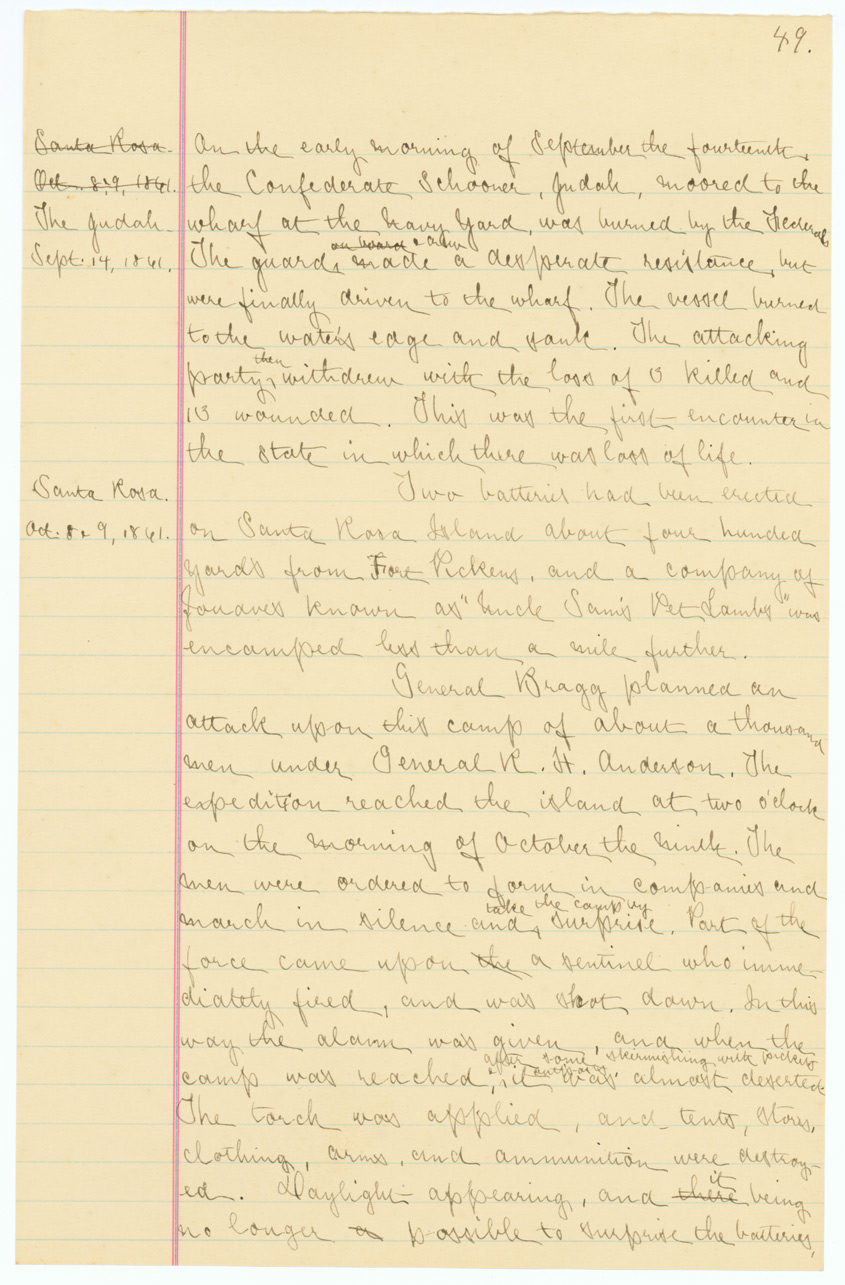 49.
Santa Rosa.
Oct. 8, 9, 1861.
The Judah.
Sept. 14, 1861.
On the early morning of September the fourteenth,
the Confederate Schooner, Judah, moored to the
wharf at the Navy Yard, was burned by the Federals
on board
The guards made a desperate resistance, but
were finally driven to the wharf. The vessel burned
to the water's edge and sank. The attacking
then
party, withdrew with the loss of 3 killed and
13 wounded. This was the first encounter in
the state in which there was loss of life.
Santa Rosa.
Oct. 8 & 9, 1861.
Two batteries had been erected
on Santa Rosa Island about four hundred
yards from Fort Pickens, and a company of
Zouaves known as "Uncle Sam's Pet Lambs" was
encamped less than a mile further.
General Bragg planned an
attack upon this camp of about a thousand
men under General R. H. Anderson. The
expedition reached the island at two o'clock
on the morning of October the ninth. The
men were ordered to form in companies and
take the camp by
march in silence and surprise. Part of the
force came upon the a sentinel who imme-
diately fired, and was shot down. In this
way the alarm was given, and when the
after some skirmishing with pickets
camp was reached, it was almost deserted.
The torch was applied, and tents, stores,
clothing, arms, and ammunition were destroy-
it
ed. Daylight appearing, and there being
no longer a possible to surprise the batteries,